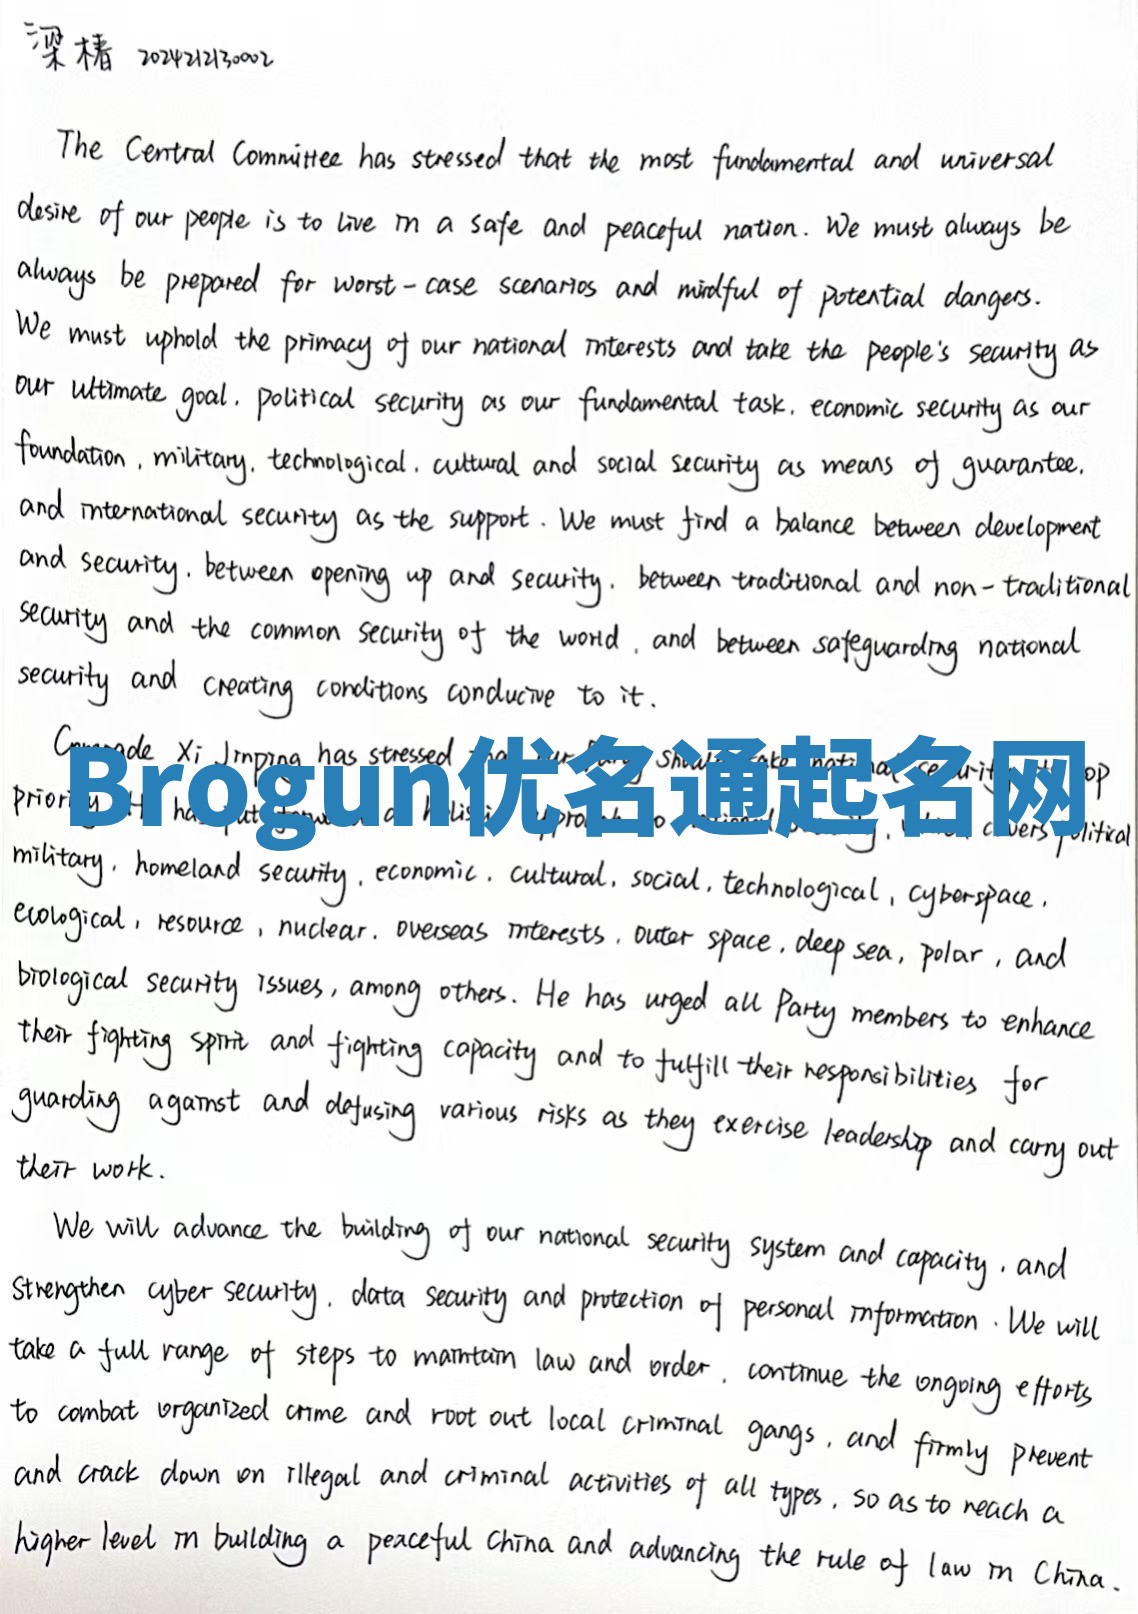 梁椿 2024212130002
The Central Committee has stressed that the most fundamental and universal
desire of our people is to live in a safe and peaceful nation. We must always be
always be prepared for worst-case scenarios and mindful of potential dangers.
We must uphold the primacy of our national interests and take the people's security as
our ultimate goal, political security as our fundamental task, economic security as our
foundation, military, technological, cultural and social security as means of guarantee,
and international security as the support. We must find a balance between development
and security, between opening up and security, between traditional and non-traditional
security and the common security of the world, and between safeguarding national
security and creating conditions conducive to it.
Comrade Xi Jinping has stressed
Brogun优名通起名网
covers political
military, homeland security, economic, cultural, social, technological, cyberspace,
ecological, resource, nuclear, overseas interests, outer space, deep sea, polar, and
biological security issues, among others. He has urged all Party members to enhance
their fighting spirit and fighting capacity and to fulfill their responsibilities for
guarding against and defusing various risks as they exercise leadership and carry out
their work.
We will advance the building of our national security system and capacity, and
strengthen cyber security, data security and protection of personal information. We will
take a full range of steps to maintain law and order, continue the ongoing efforts
to combat organized crime and root out local criminal gangs, and firmly prevent
and crack down on illegal and criminal activities of all types, so as to reach a
higher level in building a peaceful China and advancing the rule of law in China.